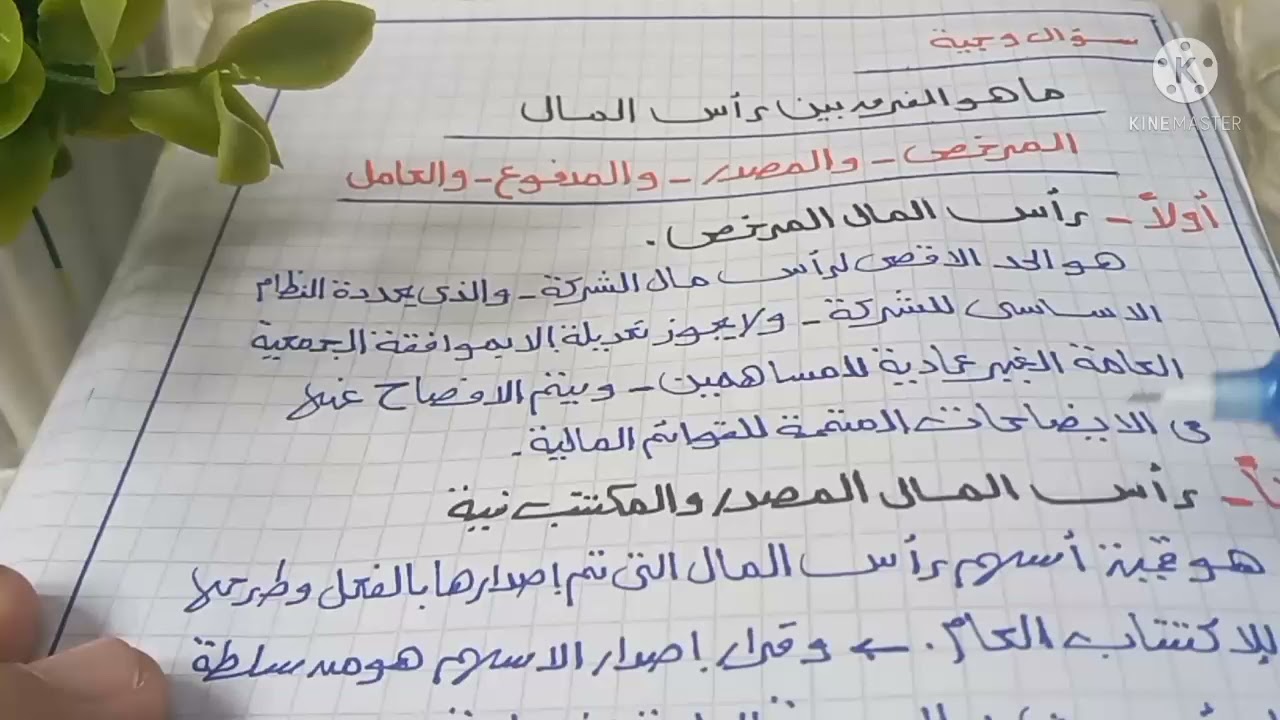 سؤال وجية
KINEMASTER
ما هو الفرق بين رأس المال
المرخص - والمصدر - والمدفوع - والعامل
أولاً - رأس المال المرخص.
هو الحد الاقصى لرأس مال الشركة - والذى يحددة النظام
الاساسى للشركة - ولا يجوز تعديلة إلا بموافقة الجمعية
العامة الغير عادية للمساهمين - ويتم الافصاح عنها
فى الايضاحات المتممة للقوائم المالية.
رأس المال المصدر والمكتتب فية
هو قيمة أسهم رأس المال التى تم إصدارها بالفعل وطرحها
للاكتتاب العام. ← وقرار إصدار الاسهم هو من سلطة